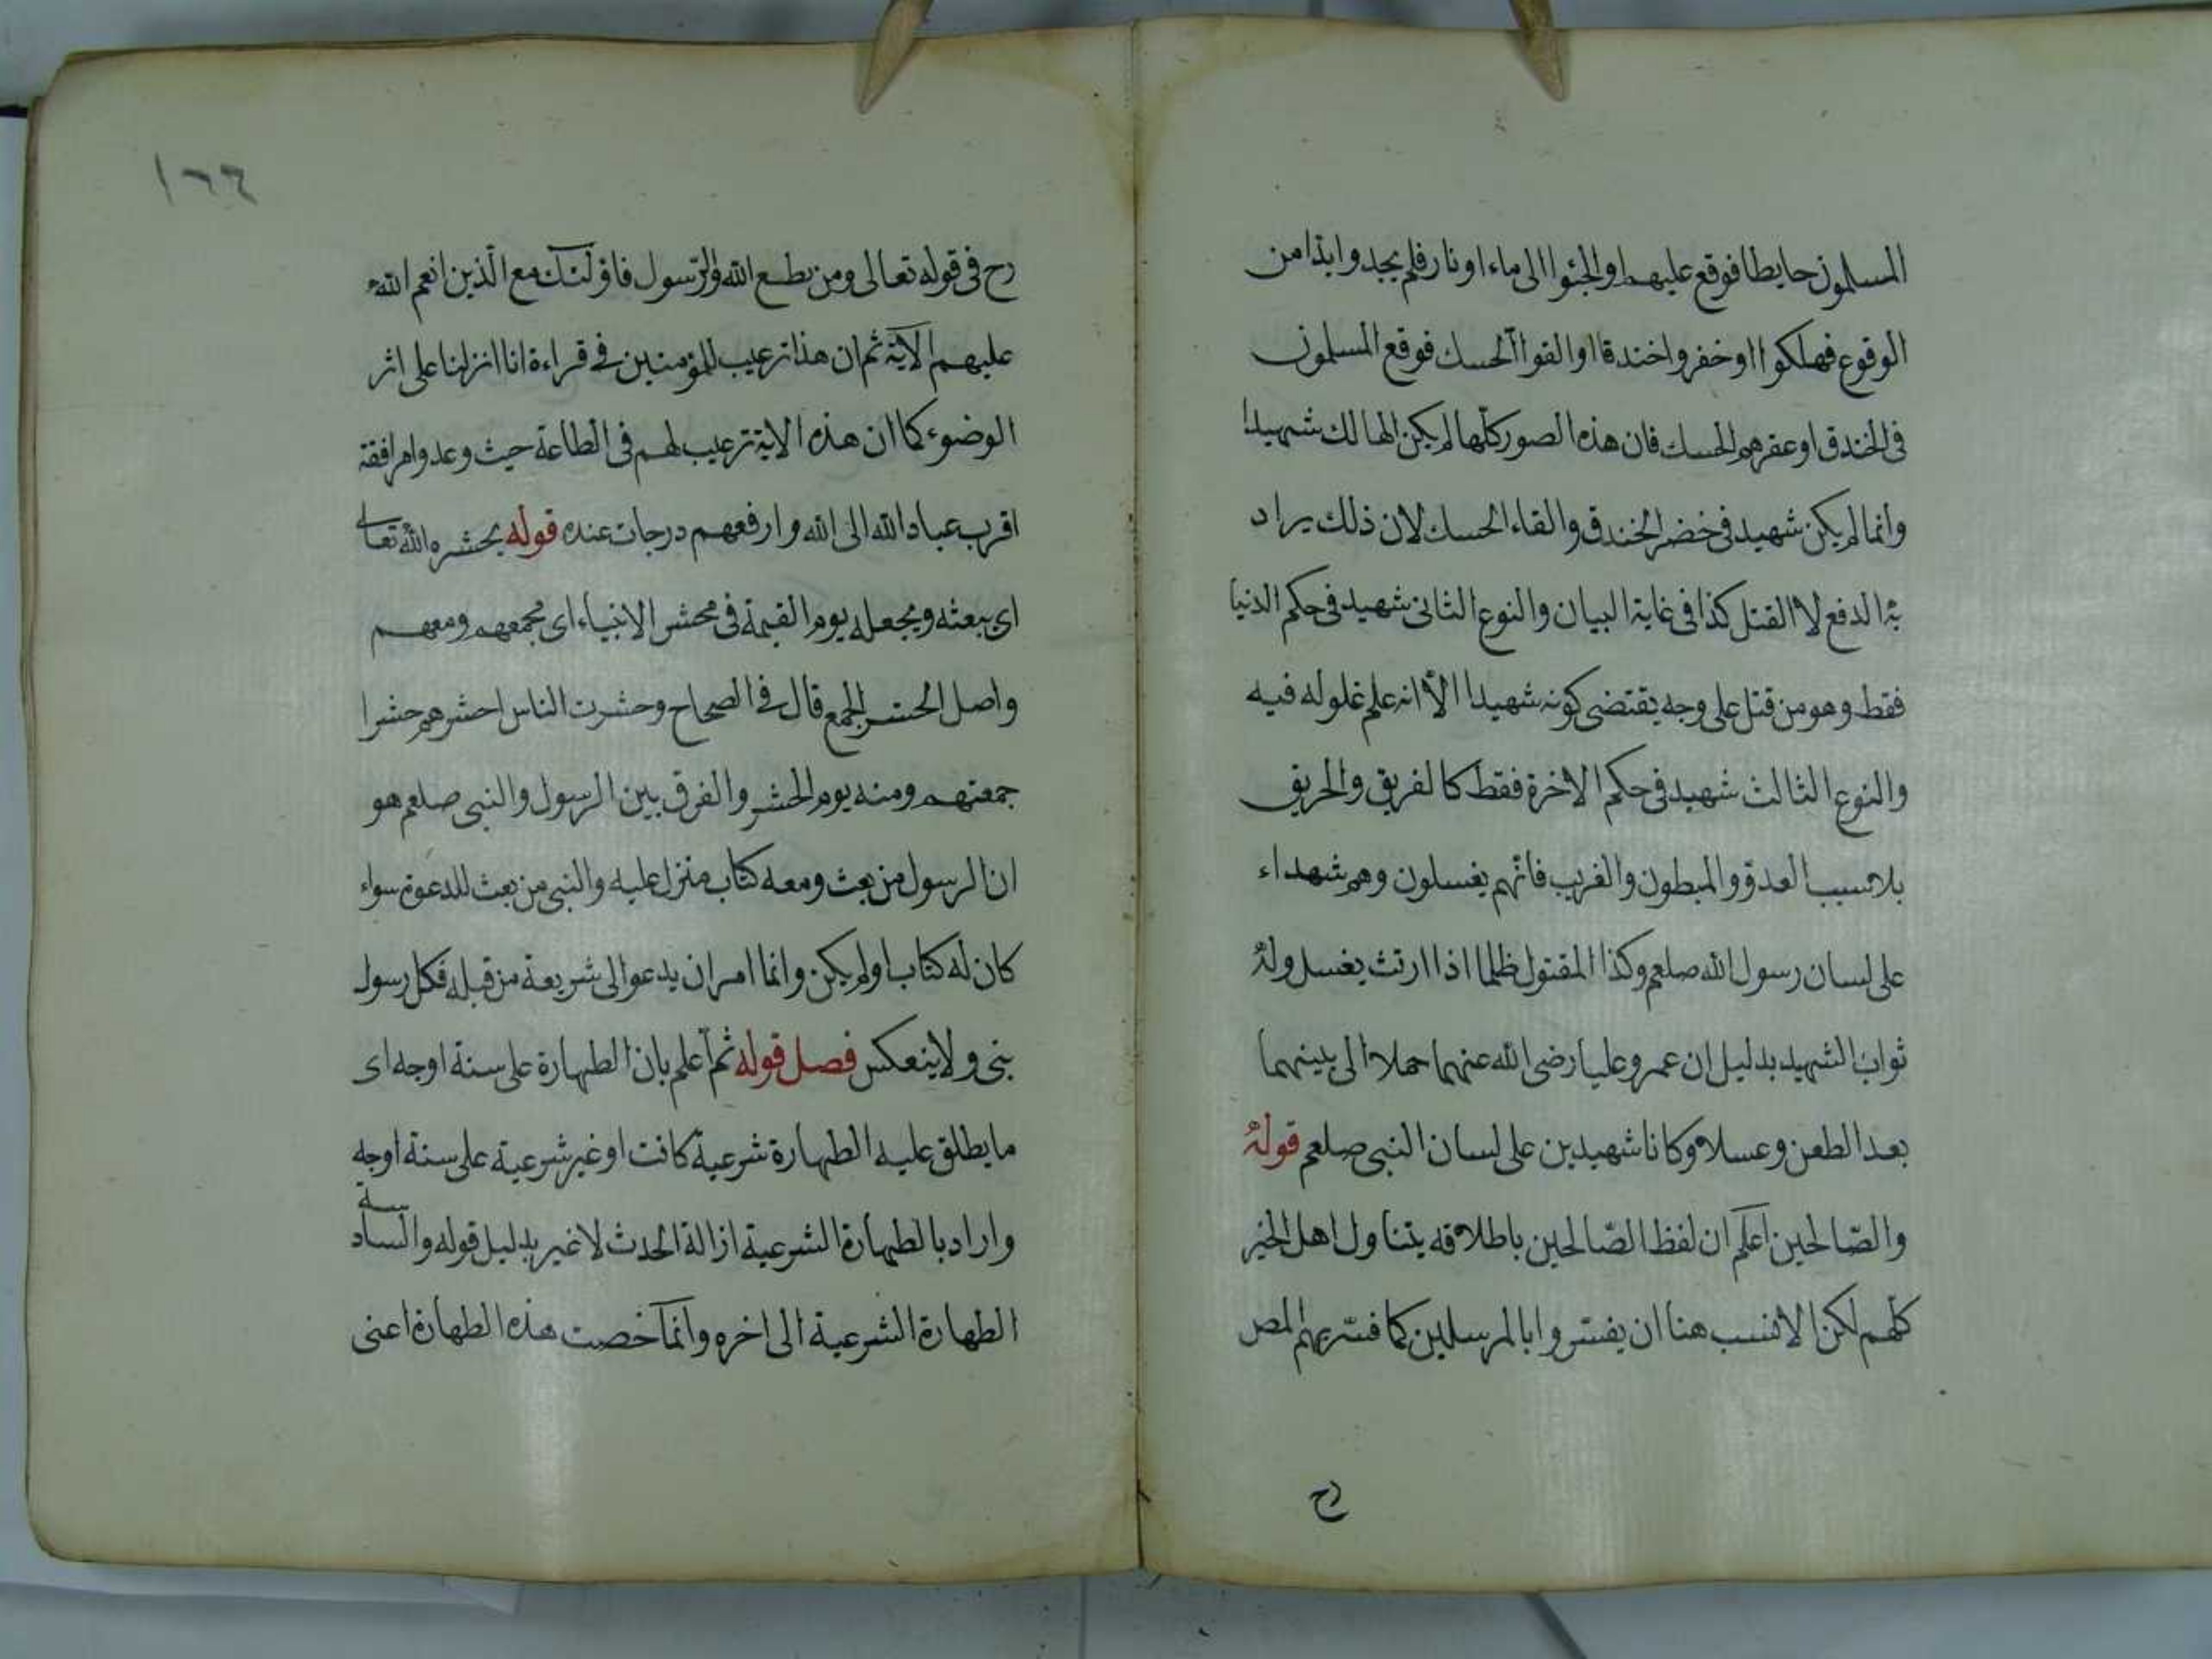 المسلمون حايطا فوقع عليهم او الجئوا الى ماء او نار فلم يجدوا ابدا من
الوقوع فهلكوا او خفروا خندقا او القوا الحسك فوقع المسلمون
فى الخندق او عقرهم الحسك فان هذه الصور كلها لم يكن الهالك شهيدا
وانما لم يكن شهيد فى خضر الخندق والقاء الحسك لان ذلك يراد
به الدفع لا القتل كذا فى غاية البيان والنوع الثانى شهيد فى حكم الدنيا
فقط وهو من قتل على وجه يقتضى كونه شهيدا الا انه علم غلوله فيه
والنوع الثالث شهيد فى حكم الاخرة فقط كالغريق والحريق
بلا سبب العدو والمبطون والغريب فانهم يغسلون وهم شهداء
على لسان رسول الله صلعم وكذا المقتول ظلما اذا ارتث يغسل وله
ثواب الشهيد بدليل ان عمر وعليا رضى الله عنهما حملا الى بيتهما
بعد الطعن وعسلا وكانا شهيدين على لسان النبى صلعم قوله
والصالحين اعلم ان لفظ الصالحين باطلاقه يتناول اهل الخير
كلهم لكن الانسب هنا ان يفسروا بالمرسلين كما فسر بهم المص
رح
١٦٦
رح فى قوله تعالى ومن يطع الله والرسول فاولئك مع الذين انعم الله
عليهم الآية ثم ان هذا ترغيب للمؤمنين فى قراءة انا انزلنا على اثر
الوضوء كما ان هذه الاية ترغيب لهم فى الطاعة حيث وعدوا مرافقة
اقرب عباد الله الى الله وارفعهم درجات عنده قوله يحشره الله تعالى
اى يبعثه ويجعله يوم القيمة فى محشر الانبياء اى مجمعهم ومعهم
واصل الحشر الجمع قال فى الصحاح وحشرت الناس احشرهم حشرا
جمعتهم ومنه يوم الحشر والفرق بين الرسول والنبى صلعم هو
ان الرسول من بعث ومعه كتاب منزل عليه والنبى من بعث للدعوة سواء
كان له كتاب او لم يكن وانما امر ان يدعو الى شريعة من قبله فكل رسول
بنى ولا ينعكس فصل قوله ثم اعلم بان الطهارة على ستة اوجه اى
ما يطلق عليه الطهارة شرعية كانت او غير شرعية على ستة اوجه
واراد بالطهارة الشرعية ازالة الحدث لا غير بدليل قوله والسادسة
الطهارة الشرعية الى اخره وانما خصت هذه الطهارة اعنى